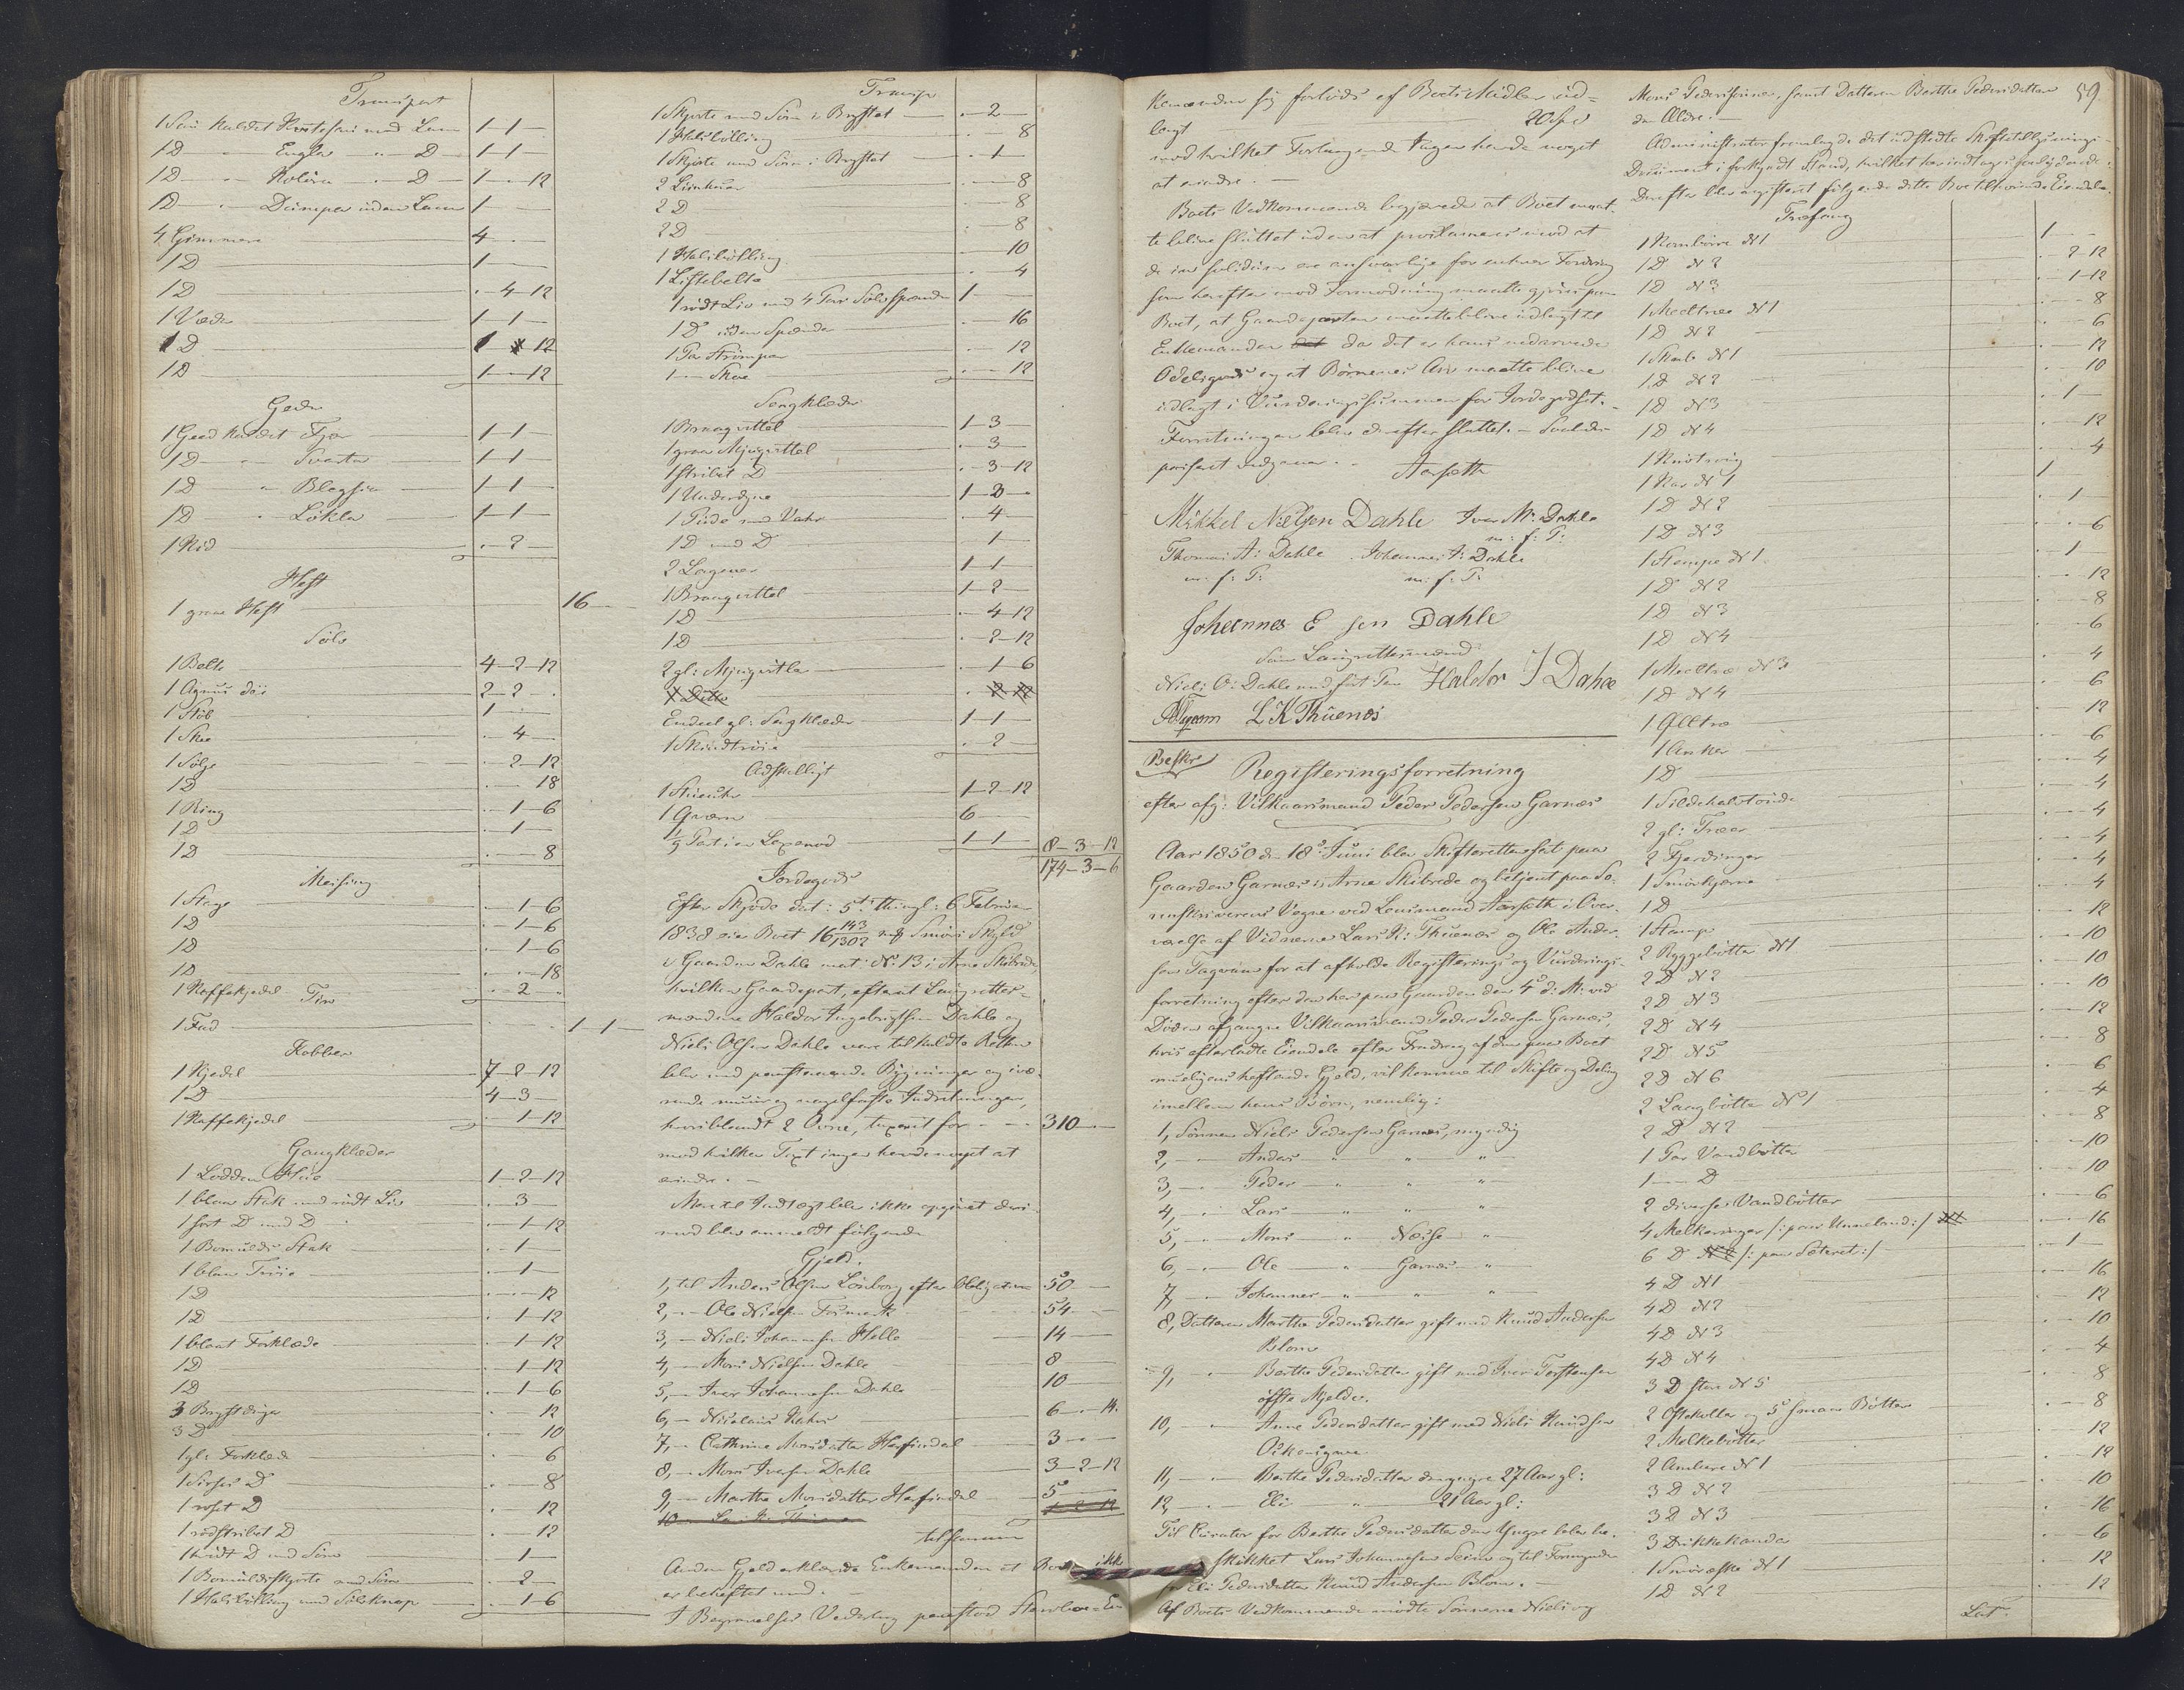 Transport
1 Sau kaldet med Lam 1-1-
1 D - Engla - D 1-1-
1 D - Kolöra - D 1-"-12
1 D - Dumpa uden Lam 1-
4 Gimmere 4-"-
1 D 1-
1 D "-4-12
1 Væder 1-1-
1 D 1-"-12
1 D 1-"-12
Geder
1 Geed kaldet Fjør 1-1-
1 D - Svarta 1-1-
1 D - Blaysia 1-1-
1 D - Løkla 1-1-
1 Kid "-2-
Hest
1 graa Hest 16-
Sølv
1 Belte 4-2-12
1 Agnus dei 2-2-
1 Stöb 1-
1 Skee "-4-
1 Sölge "-2-12
1 D "-"-18
1 Ring "-1-6
1 D "-1-
1 D "-"-8
Messing
1 Stage "-1-6
1 D "-1-6
1 D "-1-6
1 D "-"-18
1 Kaffekjedel "-2-
Tin
1 Fad 1-1-
Kobber
1 Kjedel 7-2-12
1 D 4-3-
1 Kaffekjedel "-1-12
Gangklæder
1 Lodden Hue 1-2-12
1 blaa Stak med rødt Liv "-3-
1 sort D med D "-1-12
1 Bomulds Stak "-1-
1 blaa Trøie "-1-
1 D "-"-12
1 D "-1-12
1 blaat Forklæde "-1-12
1 D "-1-12
1 D "-1-6
3 Brystduge "-"-12
3 D "-"-10
1 gl: Forklæde "-"-6
1 Sirses D "-"-8
1 roset D "-"-12
1 rødstribet D "-"-12
1 hvidt D med Søm "-1-
1 Bomuldsskjorte med Søm "-2-
1 Halskilling med Sölvknap "-1-6
Transp
1 Skjorte med Søm i Brystet "-2-
1 Halskilling "-"-8
1 Skjorte med Søm i Brystet "-1-
2 Liinhuer "-"-8
2 D "-"-8
2 D "-"-8
1 Halskilling "-"-10
1 Listebelte "-"-4
1 rødt Liv med 4 Par Sølvspænder 1-
1 D uden Spænder "-"-16
1 Par Strømper "-"-12
1 - Skoe "-"-12
Sengklæder
1 Braagvittel 1-3-
1 graa Mjugvittel "-3-
1 stribet D "-3-12
1 Underdyne 1-2-
1 Pude med Vahr "-4-
1 D med D "-1-
2 Lagener 1-1-
1 Braagvittel 1-2-
1 D "-4-12
1 D "-2-12
2 gl: Mjugvitler "-1-6
Endeel gl: Sengklæder 1-1-
1 Skindtrøie "-2-
Adskilligt
1 Stueuhr 1-2-12
1 Qværn 6-
1/9 Part i en Laxenod 1-1- 8-3-12
174-3-6
Jordegods
Efter Skjøde dat: 5te thingl: 6 Februar
1838 eier Boet 16 143/1302 Smörs Skyld
i Gaarden Dahle mat: No 13 i Arne Skibrede,
hvilken Gaardepart, efterat Laugrettes-
mændene Haldor Ingebrigtsen Dahle og
Niels Olsen Dahle vare tilkaldte Retten
blev med paastaaende Bygninger og ivæ-
rende muur og nagelfaste Indretninger,
hvoriblandt 2 Ovne, taxeret for - - 310-
mod hvilken Taxt ingen havde noget at
erindre. -
Mere til Indtægt blev ikke opgivet deri-
mod blev anmeldt følgende
Gjeld.
1, til Anders Olsen Lönborg efter Obligation 50-
2, - Ole Nielsen 54-
3, - Niels Johannesen Helle 14-
4, - Mons Nielsen Dahle 8-
5, - Iver Johannesen Dahle 10-
6, - Nicolai Kahrs 6-"-14
7, - Cathrine Monsdatter Herfindal 3-"-
8, - Mons Iversen Dahle 3-2-12
9, - Marthe Monsdatter Herfindal 5-
tilsammen
Anden Gjeld erklærede Enkemanden at Boet ikke
er beheftet med. -
I Begravelses Vederlag paastod Stervboe-En
kemanden sig forlods af Boets Midler ud-
lagt 20 Spd
mod hvilket Forlangende Ingen havde noget
at erindre. -
Boets Vedkommende begjærede at Boet maat-
te blive sluttet uden at proclameres mod at
de in solidum ere ansvarlige for enhver Fordring
som herefter mod Formodning maatte gjøres paa
Boet, at Gaardeparten maatte blive udlagt til
Enkemanden da det er hans nedarvede
Odelsgods og at Børnenes Arv maatte blive
udlagt i Vurderingssummen for Jordegodset. -
Forretningen blev derefter sluttet. -
passeret vedgaaer. - Aarseth
Mikkel Nielsen Dahle Iver M: Dahle
m: f: P:
Thomas A: Dahle Johannes I: Dahle
m: f: P: m: f: P:
Johannes E sen Dahle
som Laugrettesmænd
Niels O: Dahle med ført Pen Haldor I Dahle
L K Thuenæs
Beskr
Registeringsforretning
efter afg: Vilkaarsmand Peder Pedersen Garnæs
Aar 1850 den 18de Juni blev Skifteretten sat paa
Gaarden Garnæs i Arne Skibrede og betjent paa So-
renskriverens Vegne ved Lensmand Aarseth i Over-
værelse af Vidnerne Lars K: Thuenæs og Ole Ander-
sen for at afholde Registerings og Vurderings-
forretning efter den her paa Gaarden den 4de d: M: ved
Døden afgangne Vilkaarsmand Peder Pedersen Garnæs,
hvis efterladte Eiendele efter Fradrag af den paa Boet
mueligens heftende Gjeld, vil komme til Skifte og Deling
imellem hans Børn, nemlig:
1, Sønnen Niels Pedersen Garnæs, myndig
2, - Anders " " "
3, - Peder " " "
4, - Lars " " "
5, - Mons " "
6, - Ole " Garnæs "
7, - Johannes " " "
8, Datteren Marthe Pedersdatter gift med Knud Andersen
Blom
9, - Berthe Pedersdatter gift med Iver Torstensen
øffste Mjelde.
10, - Anne Pedersdatter gift med Niels Knudsen
11, - Berthe Pedersdatter den yngre 27 Aar gl:
12, - Eli " 21 Aar gl:
Til Curator for Berthe Pedersdatter den Yngre blev be-
skikket Lars Johannesen Seim og til Formynder
for Eli Pedersdatter Knud Andersen Blom. -
Af Boets Vedkommende mødte Sønnerne Niels og
59
Mons Pedersønner, samt Datteren Berthe Pedersdatter
den Ældre. -
Administrator fremlagde det udstedte Skiftetillysnings-
Document i forkyndt Stand, hvilket her indtages saalydende:
Derefter blev registeret følgende dette Boe tilhørende Eiendele
Træfang
1 Kornbøre N 1 1-
1 D N 2 "-2-12
1 D N 3 "-1-12
1 Meeltrau N 1 "-"-8
1 D N 2 "-"-6
1 Skab N 1 "-"-12
1 D N 2 "-"-10
1 D N 3 "-1-
1 D N 4 "-"-12
1 "-"-4
1 Kar N 1 1
1 D N 2 "-1-
1 D N 3 "-"-6
1 Stampe N 1 "-1-
1 D N 2 "-"-12
1 D N 3 "-"-8
1 D N 4 "-"-6
1 Meeltrau N 3 "-"-4
1 D N 4 "-"-6
1 Øltre "-"-12
1 Anker "-"-6
1 D "-"-4
1 Sildehalvtønde "-"-4
2 gl: Træer "-"-4
2 Fjerdinger "-"-4
1 Smørkjerne "-"-4
1 D "-"-4
1 Stamp "-"-12
2 Byggebøtter N 1 "-"-10
2 D N 2 "-"-10
2 D N 3 "-"-10
2 D N 4 "-"-12
2 D N 5 "-"-8
2 D N 6 "-"-6
2 Laugbøtter N 1 "-"-4
2 D N 2 "-"-8
1 Par Vandbøtter "-"-10
1 - D "-"-10
2 diverse Vandbøtter "-"-6
4 Melkeringer /: paa Unneland :/ "-"-16
6 D /: paa Sæteret :/ "-1-
4 D N 1 "-"-16
4 D N 2 "-"-12
4 D N 3 "-"-10
4 D N 4 "-"-4
3 D store N 5 "-"-8
2 Ostekoller og 5 smaae Bøtter "-"-8
2 Melkebøtter "-"-12
2 Ambere N 1 "-"-12
3 D N 2 "-"-10
3 D N 3 "-"-16
3 Drikkekander "-"-6
1 Smøræske N 1 "-"-12
1 D N 2 "-"-12
Lat.